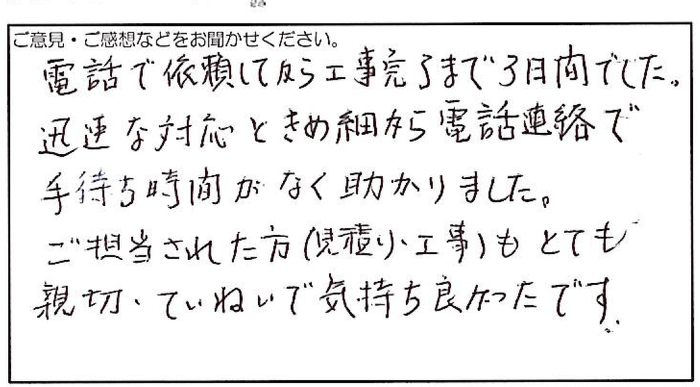 ご意見・ご感想などをお聞かせください。
電話で依頼してから工事完了まで3日間でした。
迅速な対応ときめ細から電話連絡で
手待ち時間がなく助かりました。
ご担当された方(見積り、工事)もとても
親切、ていねいで気持ち良かったです